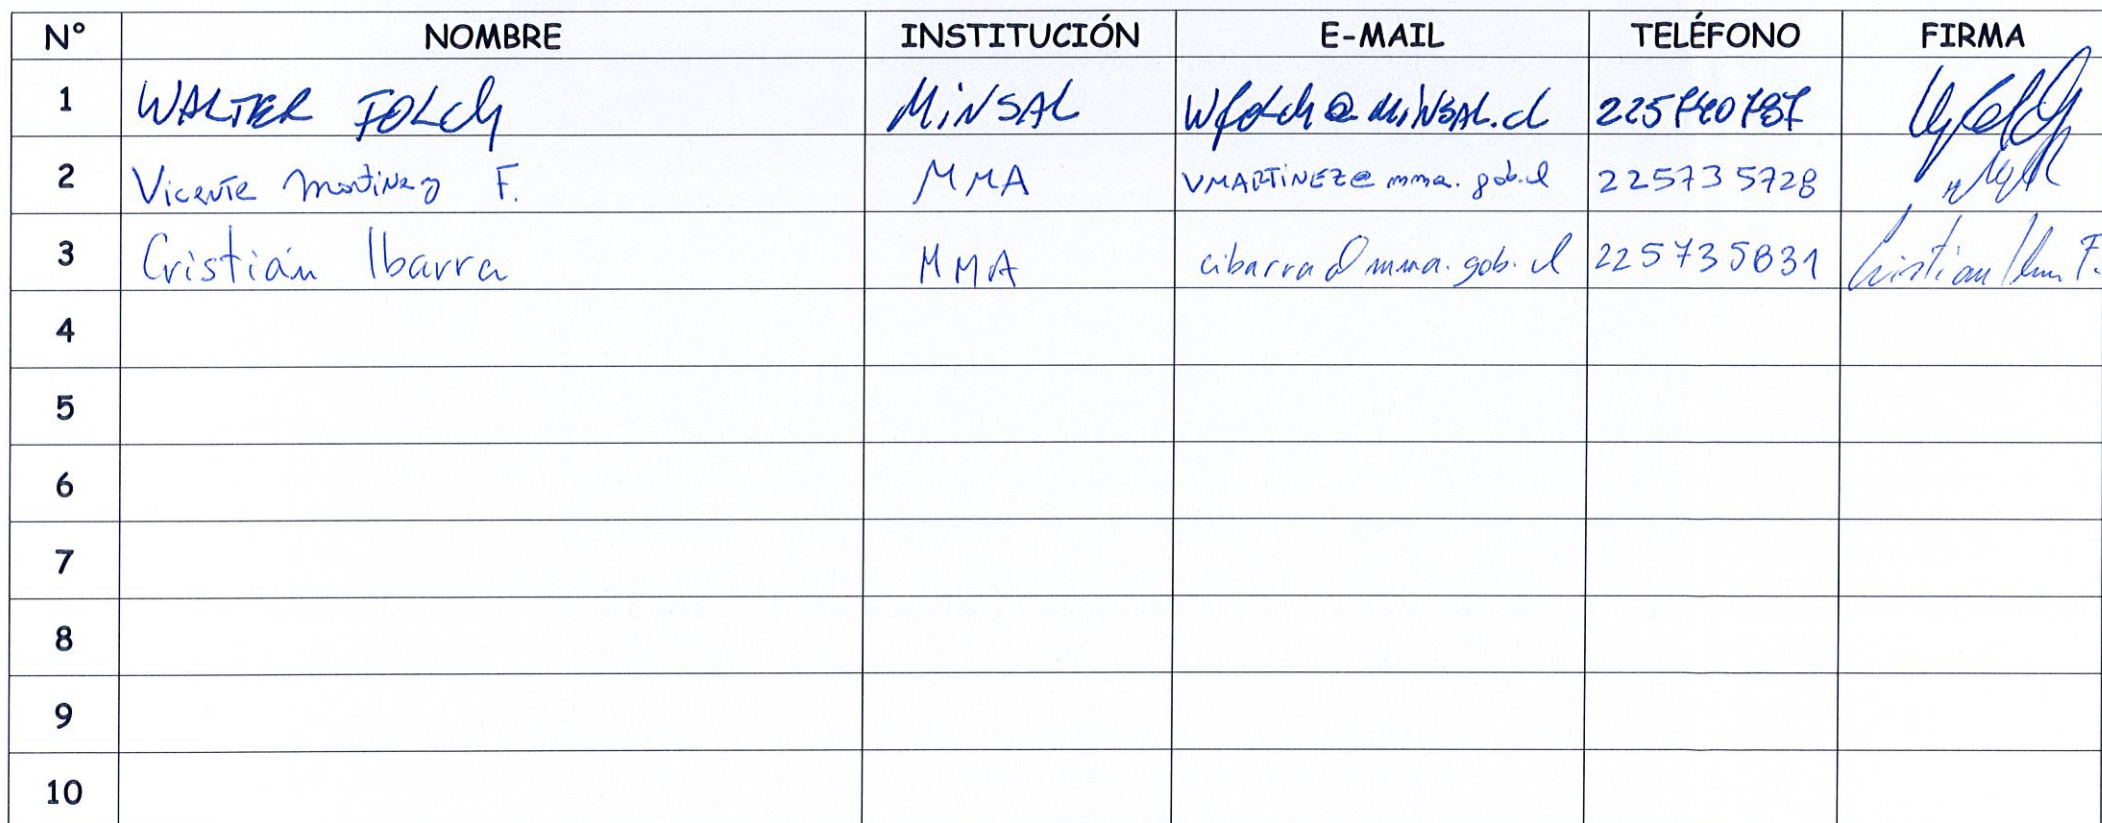 N° NOMBRE INSTITUCIÓN E-MAIL TELÉFONO FIRMA
1 WALTER FOLCH MINSAL Wfolch@MINSAL.cl
2 Vicente Martinez F. MMA VMARTINEZ@mma.gob.cl 225735728
3 Cristián Ibarra MMA cibarra@mma.gob.cl 225735831
4
5
6
7
8
9
10